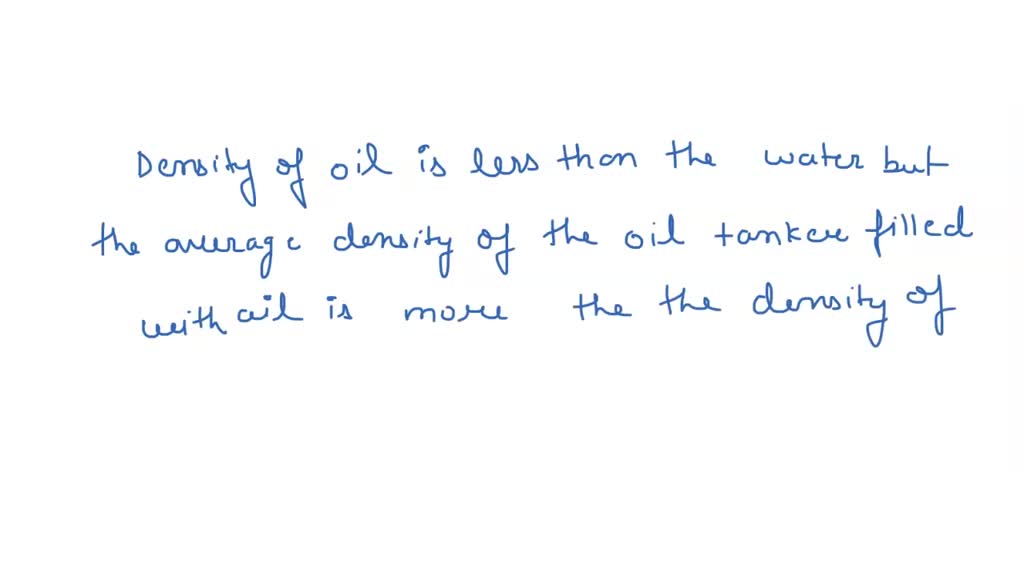 Density of oil is less than the water but
the average density of the oil tanker filled
with oil is more the the density of